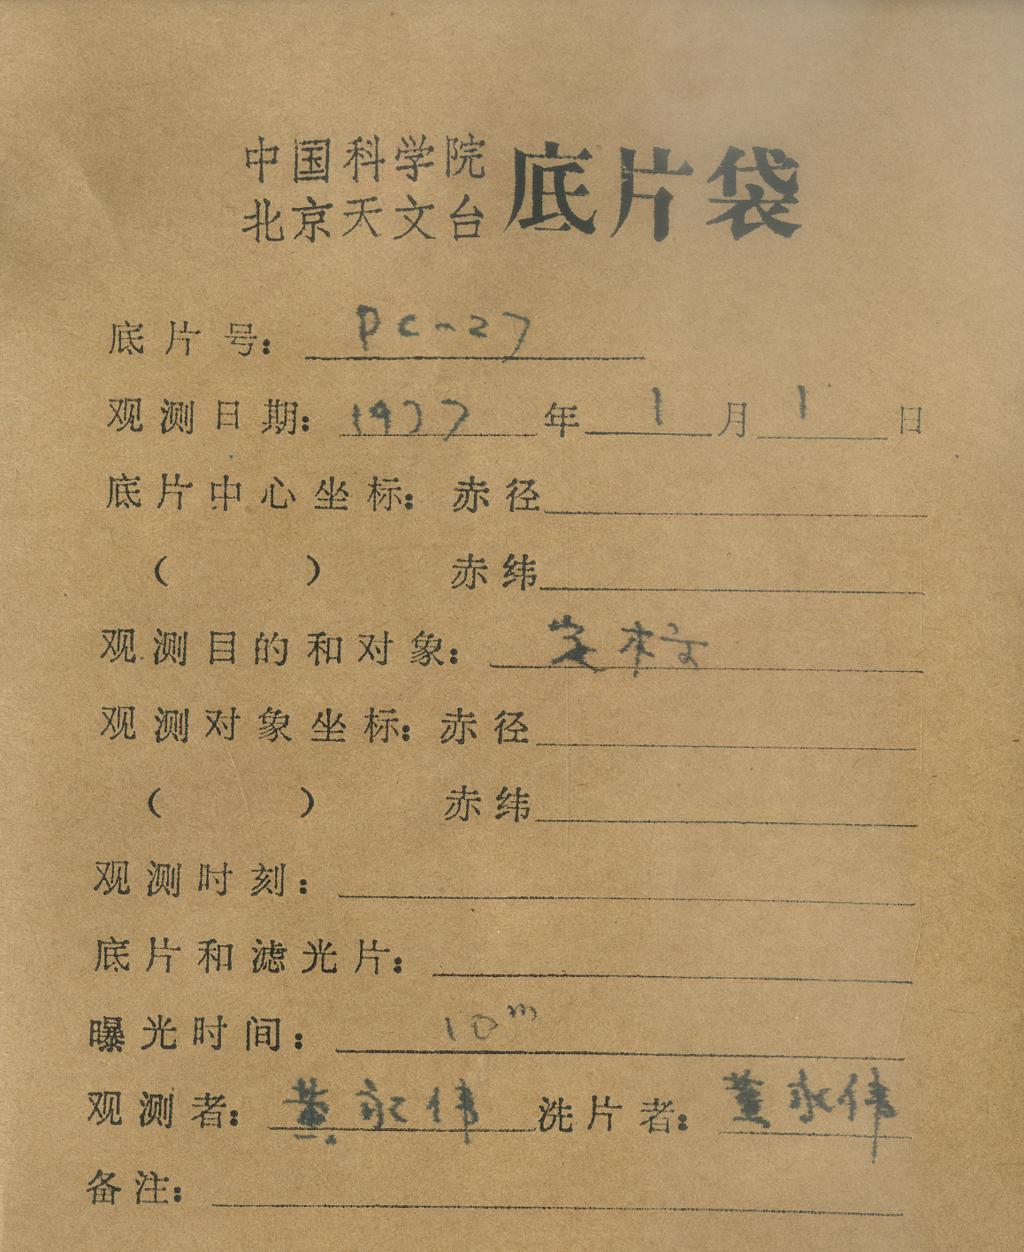 中国科学院
北京天文台 底片袋
底片号: pc-27
观测日期: 1977年1月1日
底片中心坐标: 赤径
( ) 赤纬
观测目的和对象: 定标
观测对象坐标: 赤径
( ) 赤纬
观测时刻:
底片和滤光片:
曝光时间: 10m
观测者: 黄永伟 洗片者: 黄永伟
备注: